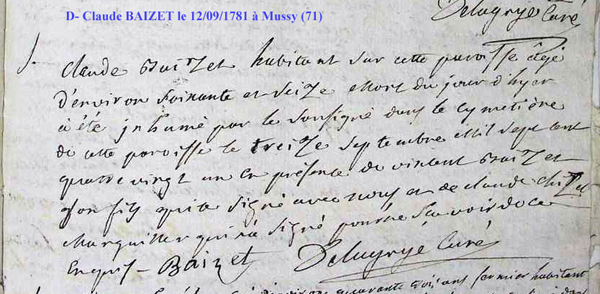 Delugnye Curé
D- Claude BAIZET le 12/09/1781 à Mussy (71)
Claude Baizet habitant sur cette paroisse âgé
d'environ soixante et seize est mort du jour d'hyer
a été inhumé par le soussigné dans le cymetière
de cette paroisse le treize septembre mil sept cent
quatre vingt un en présence de vincent Baizet
son fils qui a signé avec nous et de claude
marguillier qui n'a signé pour ne sçavoir de ce
Enquis - Baizet Delugnye Curé
quarante trois ans fermier habitant